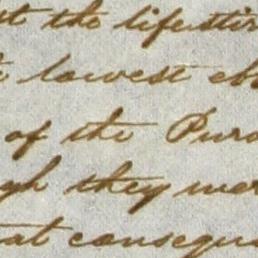 at the lifestir
lowest eb
of the Pur
gh they wer
at consequ